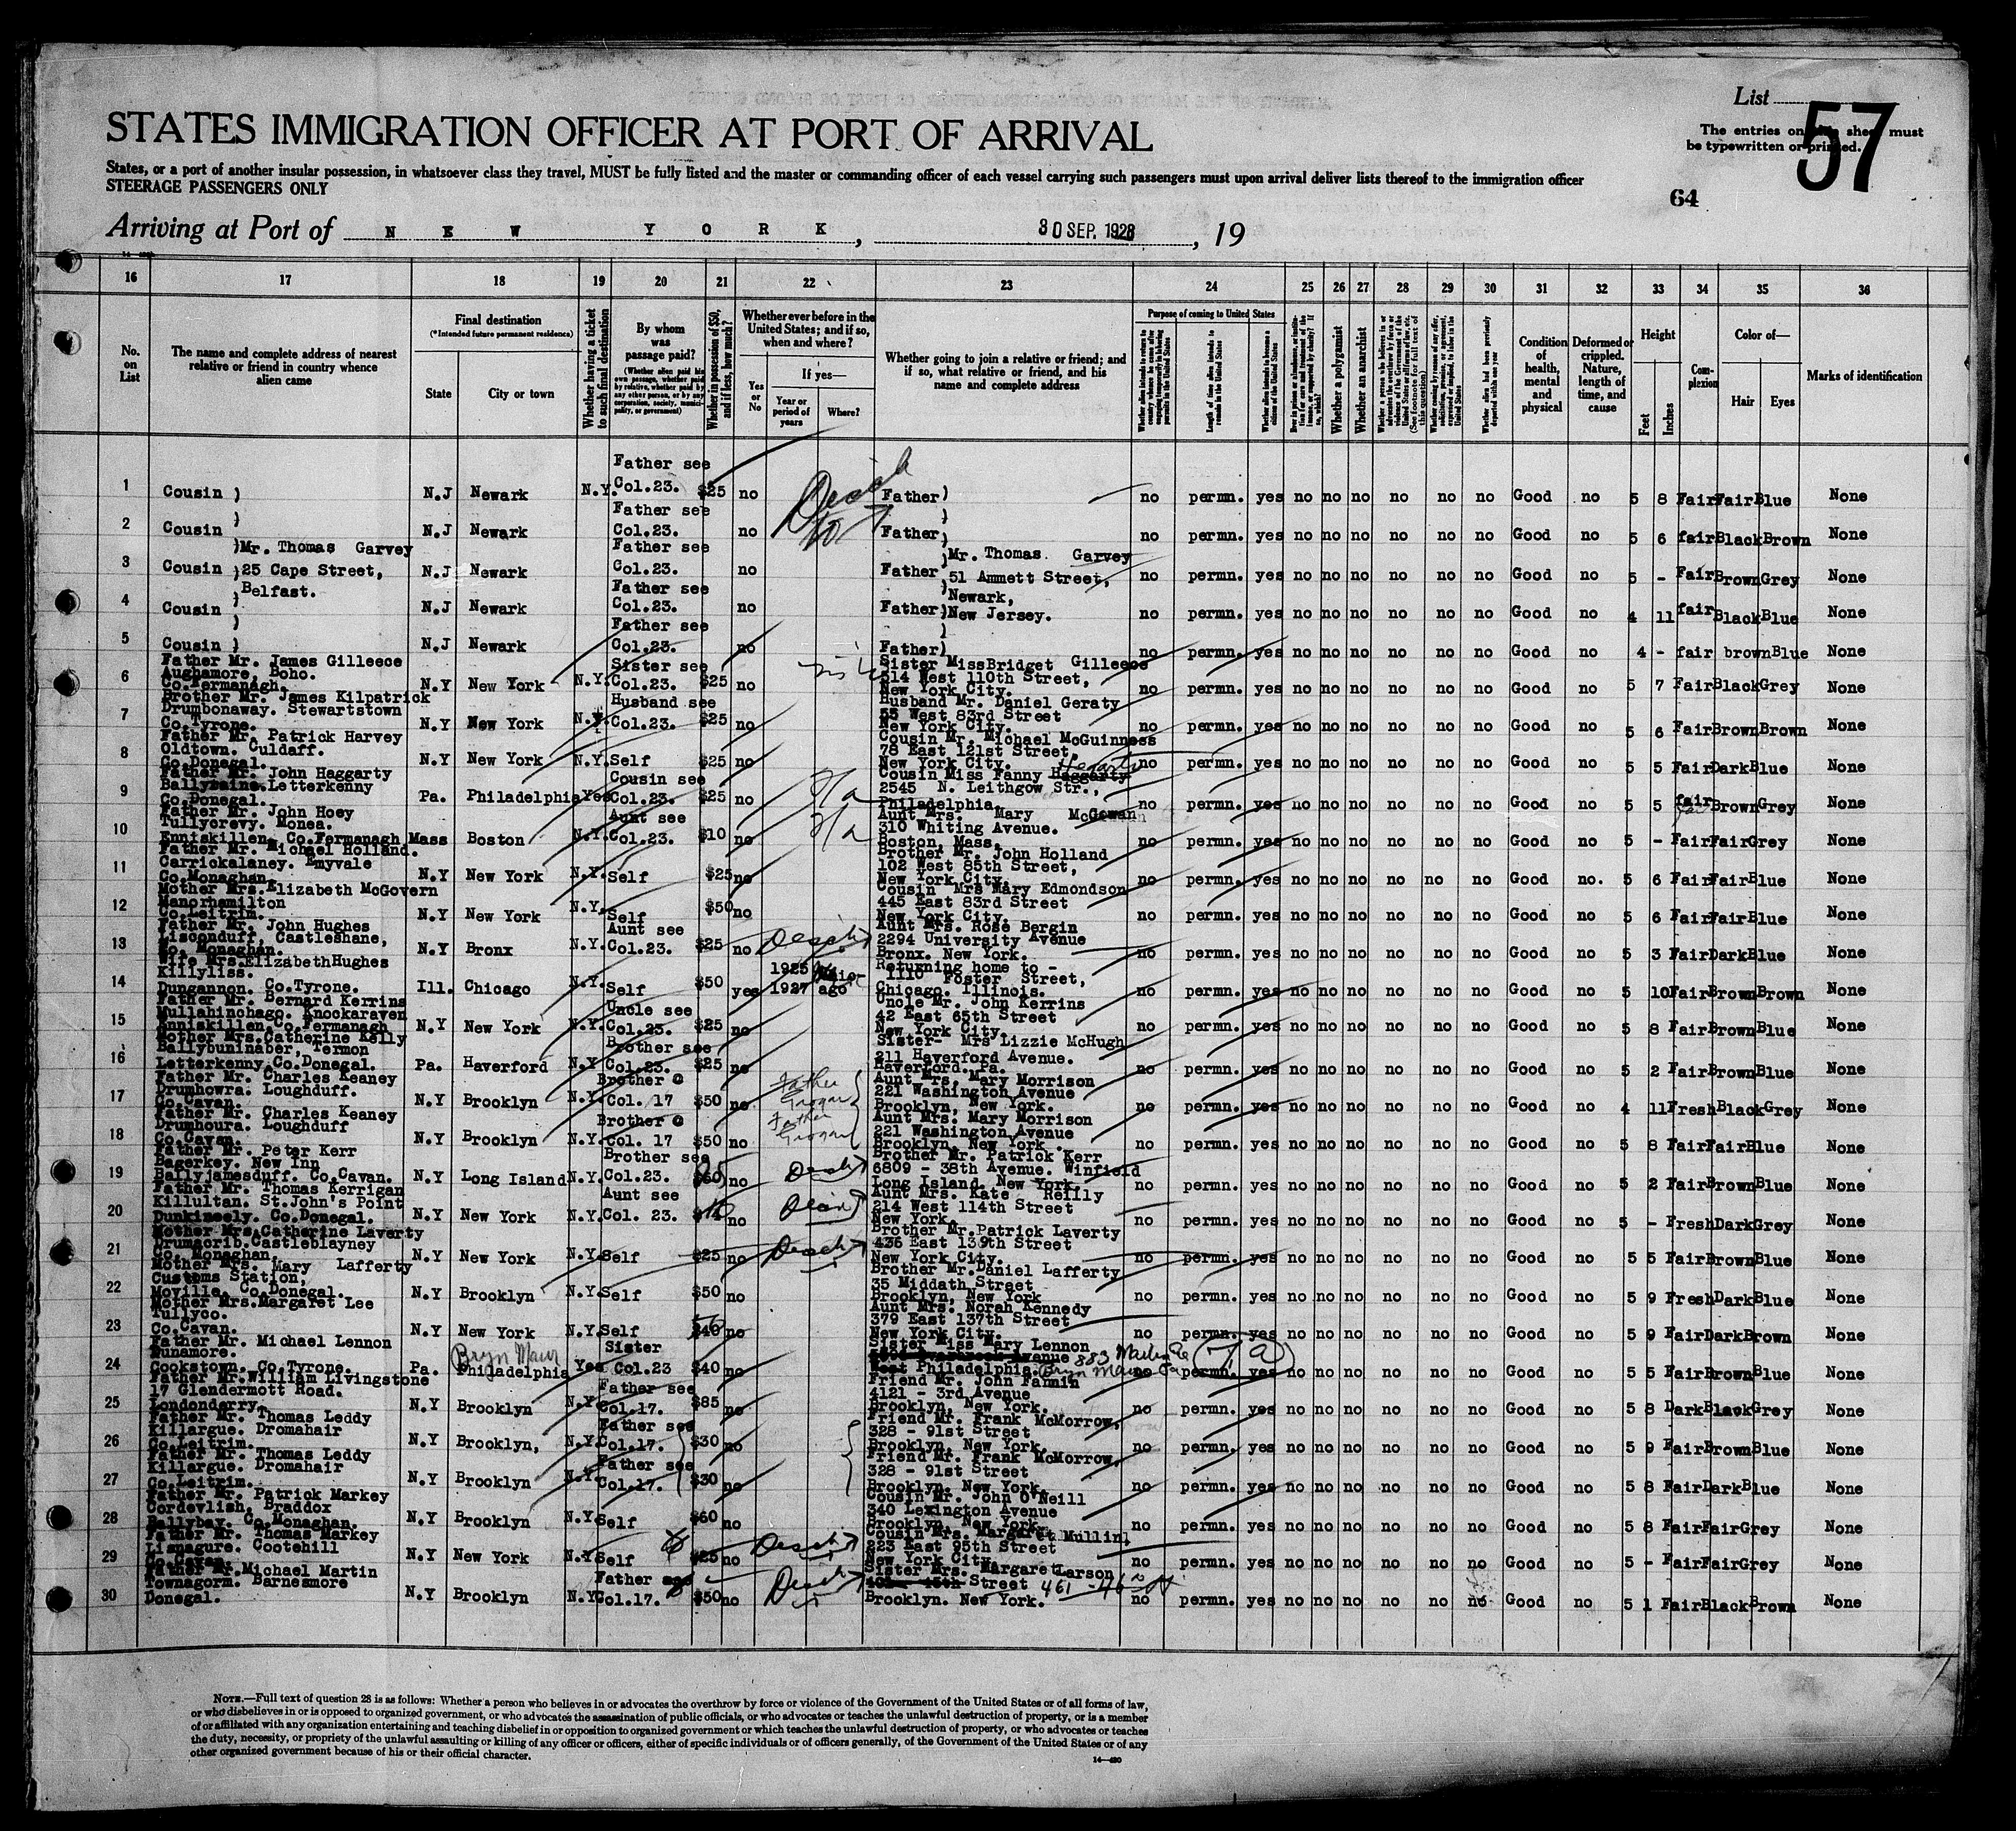 List
57
The entries on this sheet must
be typewritten or printed.
64
STATES IMMIGRATION OFFICER AT PORT OF ARRIVAL
States, or a port of another insular possession, in whatsoever class they travel, MUST be fully listed and the master or commanding officer of each vessel carrying such passengers must upon arrival deliver lists thereof to the immigration officer
STEERAGE PASSENGERS ONLY
Arriving at Port of NEW YORK, 30 SEP. 1928, 19
16 17 18 19 20 21 22 23 24 25 26 27 28 29 30 31 32 33 34 35 36
No. on List
The name and complete address of nearest relative or friend in country whence alien came
Final destination
(*Intended future permanent residence)
State
City or town
Whether having a ticket to such final destination
By whom was passage paid?
(Whether alien paid his own passage, whether paid by relative, whether paid by any other person, or by any corporation, society, municipality, or government)
Whether in possession of $50, and if less, how much?
Whether ever before in the United States; and if so, when and where?
Yes or No
If yes—
Year or period of years
Where?
Whether going to join a relative or friend; and if so, what relative or friend, and his name and complete address
Purpose of coming to United States
Length of time alien intends to remain in the United States
Whether alien intends to become a citizen of the United States
Whether a polygamist
Whether an anarchist
Condition of health, mental and physical
Deformed or crippled. Nature, length of time, and cause
Height
Feet
Inches
Complexion
Color of—
Hair
Eyes
Marks of identification
1 Cousin ) N.J Newark N.Y. Father see Col.23. $25 no Father) no permn. yes no no no no no no Good no 5 8 Fair Fair Blue None
2 Cousin ) N.J Newark Father see Col.23. no Father) no permn. yes no no no no no no Good no 5 6 fair Black Brown None
)Mr. Thomas Garvey
3 Cousin )25 Cape Street, N.J Newark Father see Col.23. no Father )Mr. Thomas Garvey 51 Ammett Street, no permn. yes no no no no no no Good no 5 - Fair Brown Grey None
Belfast.
4 Cousin ) N.J Newark Father see Col.23. no Father) Newark, New Jersey. no permn. yes no no no no no no Good no 4 11 fair Black Blue None
5 Cousin ) N.J Newark Father see Col.23. no Father) no permn. yes no no no no no no Good no 4 - fair brown Blue None
6 Father Mr. James Gilleece Aughamore, Boho. Co.Fermanagh. N.Y New York N.Y. Sister see Col.23. $25 no Sister Miss Bridget Gilleece 514 West 110th Street, New York City. no permn. yes no no no no no no Good no 5 7 Fair Black Grey None
7 Brother Mr. James Kilpatrick Drumbonaway. Stewartstown Co.Tyrone. N.Y New York N.Y. Husband see Col.23. $25 no Husband Mr. Daniel Geraty 55 West 83rd Street New York City. no permn. yes no no no no no no Good no 5 6 Fair Brown Brown None
8 Father Mr. Patrick Harvey Oldtown. Culdaff. Co.Donegal. N.Y New York N.Y. Self $25 no Cousin Mr. Michael McGuinness 78 East 121st Street, New York City. no permn. yes no no no no no no Good no 5 5 Fair Dark Blue None
9 Father Mr. John Haggarty Letterkenny Co.Donegal. Pa. Philadelphia Yes Cousin see Col.23. $25 no Cousin Miss Fanny Haggarty Hegarty 2545 N. Leithgow Str., Philadelphia. no permn. yes no no no no no no Good no 5 5 fair Brown Grey None
10 Father Mr. John Hoey Tullycrevy. Monea. Enniskillen. Co.Fermanagh Mass Boston N.Y. Aunt see Col.23. $10 no Aunt Mrs. Mary McGowan 310 Whiting Avenue. Boston, Mass. no permn. yes no no no no no no Good no 5 - Fair Fair Grey None
11 Father Mr. Michael Holland. Carrickalaney. Emyvale Co.Monaghan. N.Y New York N.Y. Self $25 no Brother Mr. John Holland 102 West 85th Street, New York City. no permn. yes no no no no no no Good no. 5 6 Fair Fair Blue None
12 Mother Mrs. Elizabeth McGovern Manorhamilton Co.Leitrim. N.Y New York N.Y. Self $50 no Cousin Mrs Mary Edmondson 445 East 83rd Street New York City. no permn. yes no no no no no no Good no 5 6 Fair Fair Blue None
13 Father Mr. John Hughes Lisconduff, Castleshane, Co. Monaghan. N.Y Bronx N.Y. Aunt see Col.23. $25 no Aunt Mrs. Rose Bergin 2294 University Avenue Bronx. New York. no permn. yes no no no no no no Good no 5 3 Fair Dark Blue None
14 Wife Mrs. Elizabeth Hughes Killyliss. Dungannon. Co.Tyrone. Ill. Chicago N.Y. Self $50 yes 1925 1927 Returning home to - 1110 Foster Street, Chicago. Illinois. no permn. yes no no no no no no Good no 5 10 Fair Brown Brown None
15 Father Mr. Bernard Kerrins Mullahinchago. Knockaraven Enniskillen. Co.Fermanagh N.Y New York N.Y. Uncle see Col.23. $25 no Uncle Mr. John Kerrins 42 East 65th Street New York City. no permn. yes no no no no no no Good no 5 8 Fair Brown Blue None
16 Mother Mrs.Catherine Kelly Ballybuninaber, Termon Letterkenny Co.Donegal. Pa. Haverford N.Y Brother see Col.23. $25 no Sister- Mrs Lizzie McHugh 211 Haverford Avenue. Haverford. Pa. no permn. yes no no no no no no Good no 5 2 Fair Brown Blue None
17 Father Mr. Charles Keaney Drumhowra. Loughduff. Co.Cavan. N.Y Brooklyn N.Y. Brother @ Col. 17 $50 no Father Grogan Aunt Mrs. Mary Morrison 221 Washington Avenue Brooklyn, New York. no permn. yes no no no no no no Good no 4 11 Fresh Black Grey None
18 Father Mr. Charles Keaney Drumhoura. Loughduff Co.Cavan. N.Y Brooklyn N.Y. Brother @ Col. 17 $50 no Father Grogan Aunt Mrs. Mary Morrison 221 Washington Avenue Brooklyn. New York. no permn. yes no no no no no no Good no 5 8 Fair Fair Blue None
19 Father Mr. Peter Kerr Bagerkey. New Inn Ballyjamesduff. Co.Cavan. N.Y Long Island N.Y. Brother see Col.23. no Brother Mr. Patrick Kerr 6809 - 38th Avenue. Winfield Long Island. New York. no permn. yes no no no no no no Good no 5 2 Fair Brown Blue None
20 Father Mr. Thomas Kerrigan Killultan. St.John's Point Dunkineely. Co.Donegal. N.Y New York N.Y. Aunt see Col. 23. no Aunt Mrs. Kate Reilly 214 West 114th Street New York. no permn. yes no no no no no no Good no 5 - Fresh Dark Grey None
21 Mother Mrs.Catherine Laverty Drumacrib.Castleblayney Co. Monaghan. N.Y New York N.Y. Self $25 no Brother Mr.Patrick Laverty 436 East 139th Street New York City. no permn. yes no no no no no no Good no 5 5 Fair Brown Blue None
22 Mother Mrs. Mary Lafferty Customs Station, Moville. Co.Donegal. N.Y Brooklyn N.Y. Self $50 no Brother Mr.Daniel Lafferty 35 Middath Street Brooklyn, New York no permn. yes no no no no no no Good no 5 9 Fresh Dark Blue None
23 Mother Mrs.Margaret Lee Tullyco. Co.Cavan. N.Y New York N.Y. Self $40 no Aunt Mrs. Norah Kennedy 379 East 137th Street New York City. no permn. yes no no no no no no Good no 5 9 Fair Dark Brown None
24 Father Mr. Michael Lennon Dunamore. Cookstown. Co.Tyrone. Pa. Bryn Mawr Philadelphia Yes Sister Col.23 $40 no Sister Miss Mary Lennon Avenue West Philadelphia. 883 Bryn Mawr Pa no permn. yes no no no no no no Good no 5 5 Fair Brown Blue None
25 Father Mr.William Livingstone 17 Glendermott Road. Londonderry. N.Y Brooklyn N.Y. Father see Col.17. $85 no Friend Mr. John Fannin 4121 - 3rd Avenue Brooklyn, New York. no permn. yes no no no no no no Good no 5 8 Dark Black Grey None
26 Father Mr. Thomas Leddy Killargue. Dromahair Co.Leitrim. N.Y Brooklyn, N.Y. Father see Col.17. $30 no Friend Mr. Frank McMorrow. 328 - 91st Street Brooklyn. New York. no permn. yes no no no no no no Good no 5 9 Fair Brown Blue None
27 Father Mr. Thomas Leddy Killargue. Dromahair Co.Leitrim. N.Y Brooklyn N.Y. Father see Col.17. $30 no Friend Mr. Frank McMorrow. 328 - 91st Street Brooklyn. New York. no permn. yes no no no no no no Good no 5 8 Fair Dark Blue None
28 Father Mr. Patrick Markey Cordevlish. Braddox Ballybay. Co.Monaghan. N.Y Brooklyn N.Y. Self $60 no Cousin Mr. John O'Neill 340 Lexington Avenue Brooklyn. New York. no permn. yes no no no no no no Good no 5 8 Fair Fair Grey None
29 Father Mr. Thomas Markey Lisnagure. Cootehill Co.Cavan. N.Y New York N.Y Self $25 no Cousin Mrs. Margaret Mullin 223 East 95th Street New York City. no permn. yes no no no no no no Good no 5 - Fair Fair Grey None
30 Father Mr.Michael Martin Townagorm. Barnesmore Donegal. N.Y Brooklyn N.Y. Father Col.17. $50 no Sister Mrs. Margaret Larson Street 461 Brooklyn. New York. no permn. yes no no no no no no Good no 5 1 Fair Black Brown None
NOTE.—Full text of question 28 is as follows: Whether a person who believes in or advocates the overthrow by force or violence of the Government of the United States or of all forms of law,
or who disbelieves in or is opposed to organized government, or who advocates the assassination of public officials, or who advocates or teaches the unlawful destruction of property, or is a member
of or affiliated with any organization entertaining and teaching disbelief in or opposition to organized government or which teaches the unlawful destruction of property, or who advocates or teaches
the duty, necessity, or propriety of the unlawful assaulting or killing of any officer or officers, either of specific individuals or of officers generally, of the Government of the United States or of any
other organized government because of his or their official character.
14—420